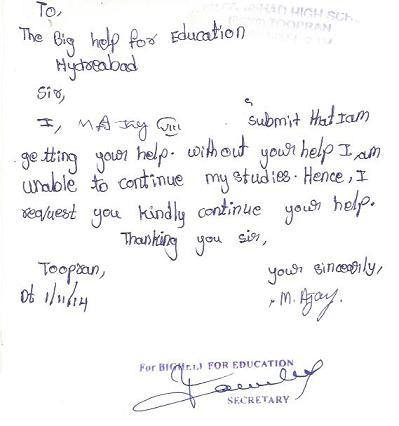 To,
HIGH SCH
TOOPRAN
The Big help for Education
Hydreabad
Sir,
I, M AJay VIII submit that I am
getting your help. without your help I am
unable to continue my studies. Hence, I
request you kindly continue your help.
Thanking you sir,
Toopran, your sincerily,
Dt 1/11/14 M. Ajay.
For BIG FOR EDUCATION
SECRETARY